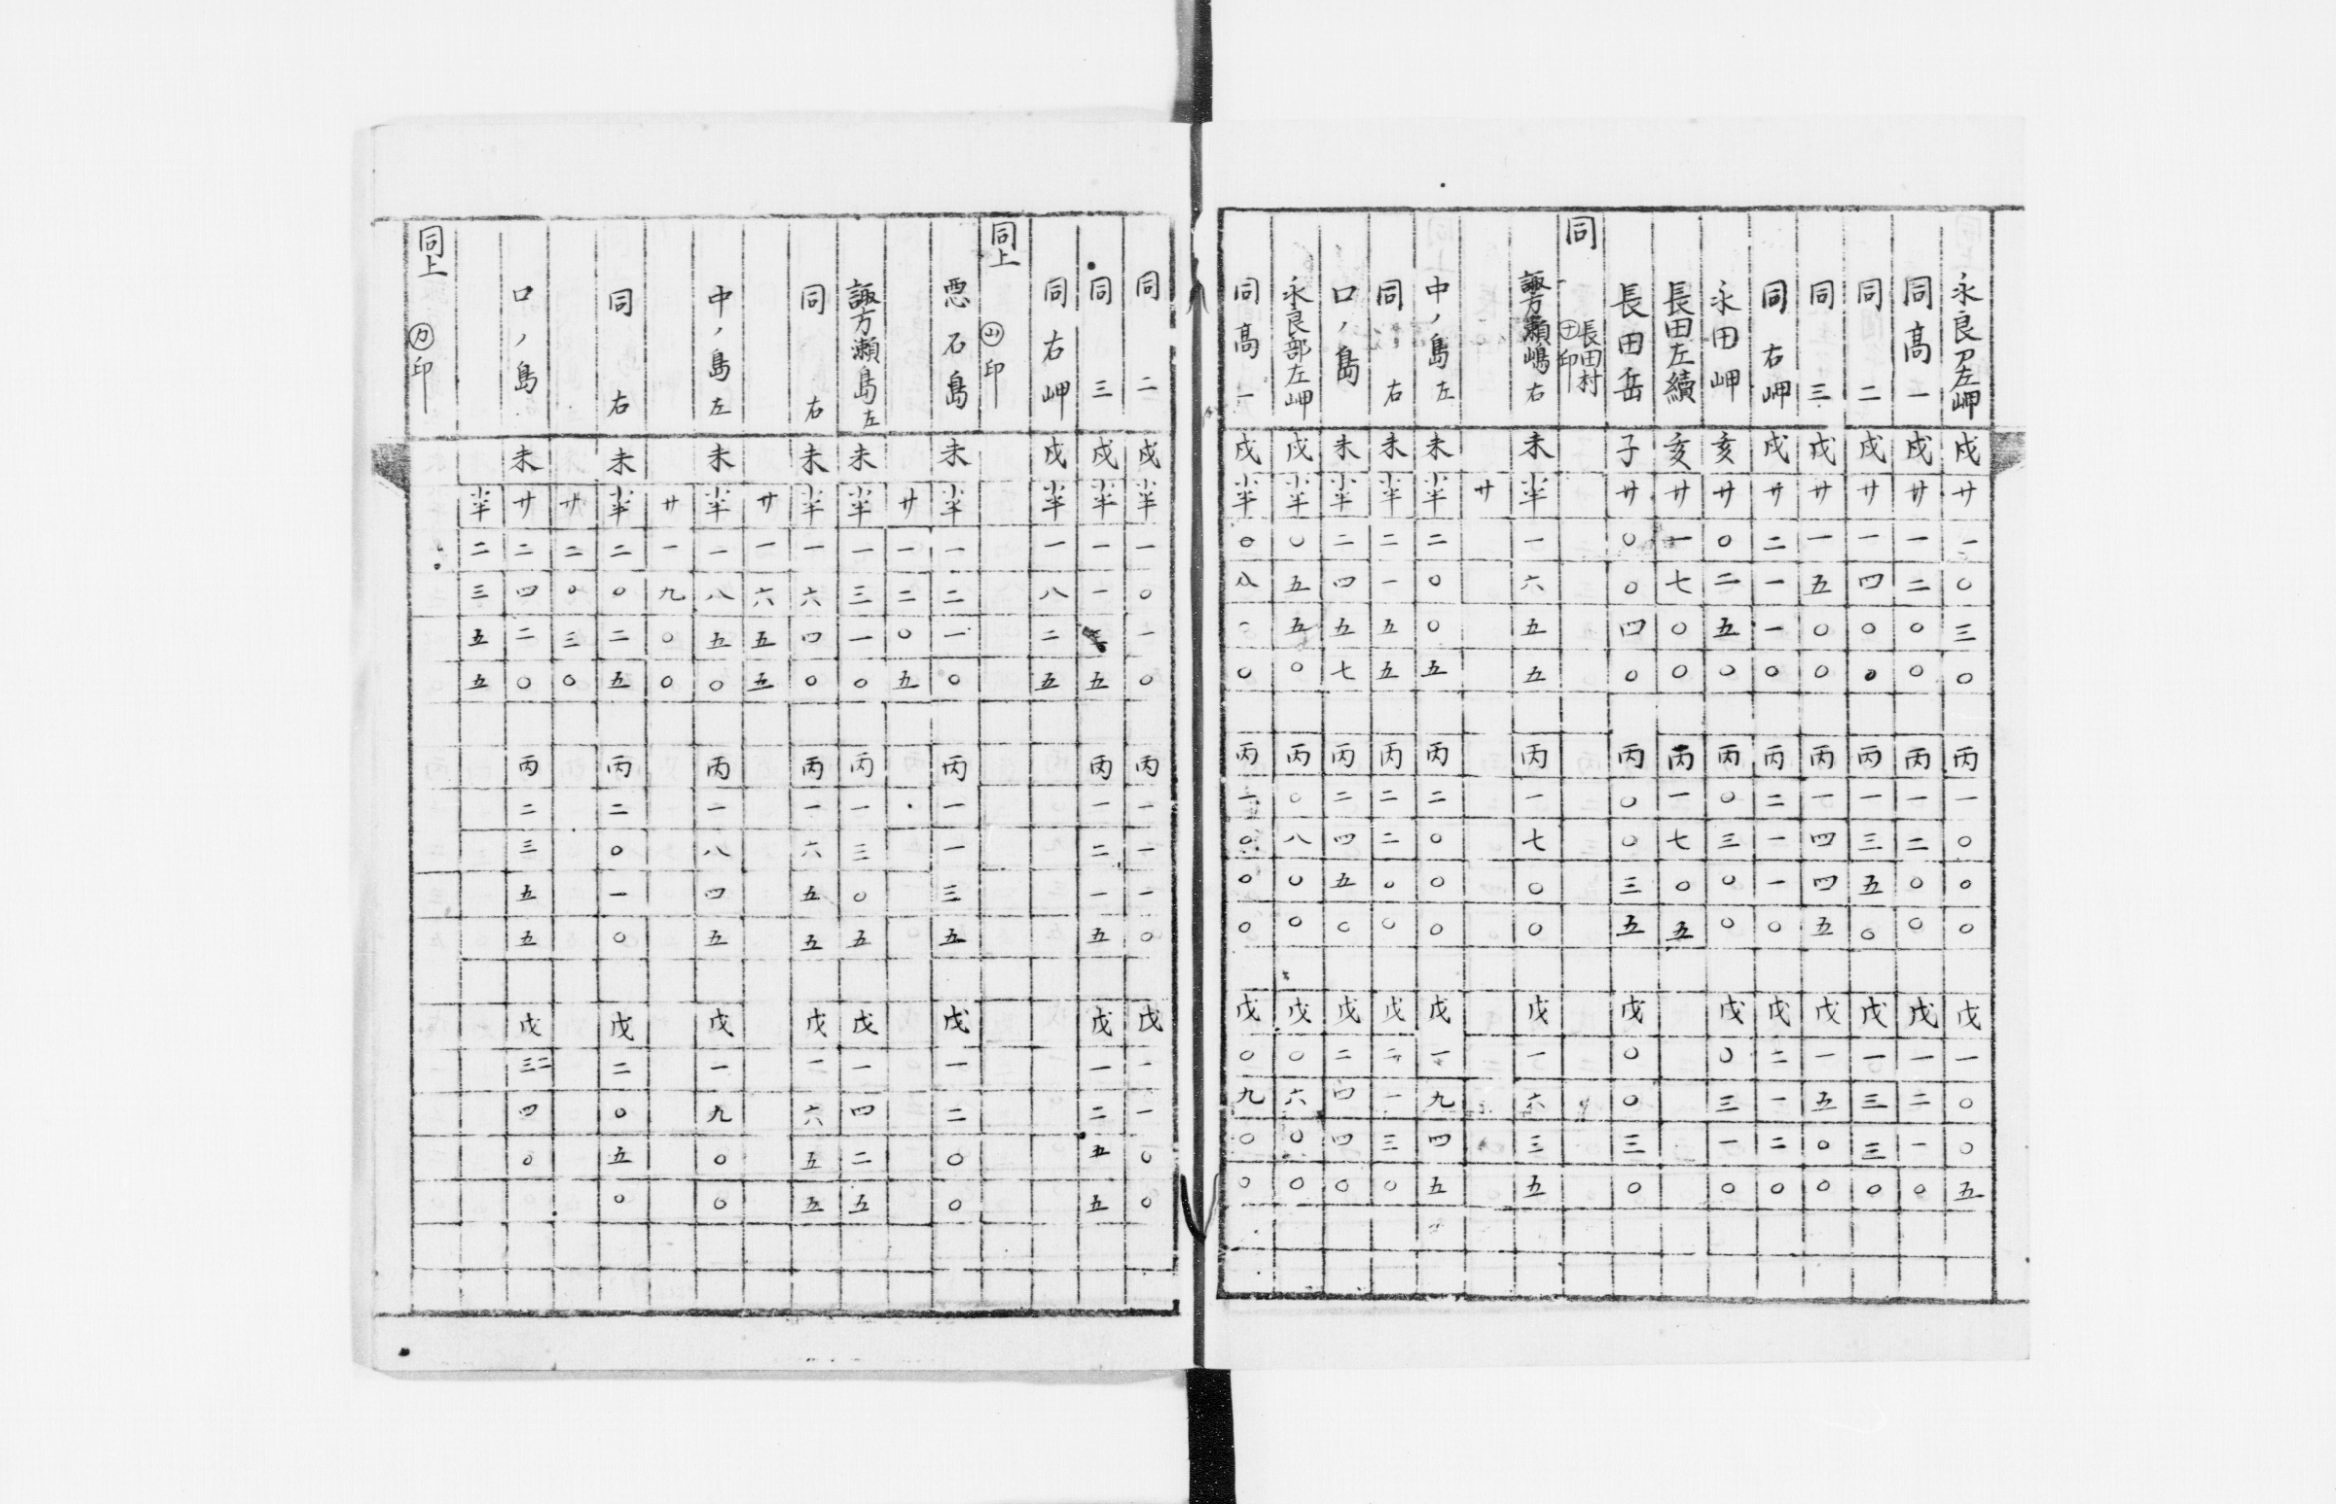 永良ア左岬 戌 廿 一 〇 三 〇 丙 一 〇 〇 〇 戊 一 〇 〇 五
同高一 戌 廿 一 二 〇 〇 丙 一 二 〇 〇 戊 一 二 一 〇
同二 戌 廿 一 四 〇 〇 丙 一 三 五 〇 戊 一 三 三 〇
同三 戌 廿 一 五 〇 〇 丙 一 四 四 五 戊 一 五 〇 〇
同右岬 戌 廿 二 一 一 〇 丙 二 一 一 〇 戊 二 一 二 〇
永田岬 亥 廿 〇 二 五 〇 丙 〇 三 〇 〇 戊 〇 三 一 〇
長田左績 亥 廿 一 七 〇 〇 丙 一 七 〇 五
長田岳 子 廿 〇 〇 四 〇 丙 〇 〇 三 五 戊 〇 〇 三 〇
同 長田村 ㋤印
諏方瀬嶋右 未 半 一 六 五 五 丙 一 七 〇 〇 戊 一 六 三 五
廿
中ノ島左 未 半 二 〇 〇 五 丙 二 〇 〇 〇 戊 一 九 四 五
同右 未 半 二 一 五 五 丙 二 二 〇 〇 戊 二 一 三 〇
口ノ島 未 半 二 四 五 七 丙 二 四 五 〇 戊 二 四 四 〇
永良部左岬 戌 半 〇 五 五 〇 丙 〇 八 〇 〇 戊 〇 六 〇 〇
同高一 戌 半 〇 八 〇 丙 〇 〇 〇 戊 〇 九 〇 〇
同二 戌 半 一 〇 一 〇 丙 一 一 一 〇 戊 一 一 〇 〇
同三 戌 半 一 一 五 丙 一 二 一 五 戊 一 二 五 五
同右岬 戌 半 一 八 二 五
同上 ㊤印
悪石島 未 半 一 二 一 〇 丙 一 一 三 五 戊 一 二 〇 〇
廿 一 二 〇 五
諏方瀬島左 未 半 一 三 一 〇 丙 一 三 〇 五 戊 一 四 二 五
同右 未 半 一 六 四 〇 丙 一 六 五 五 戊 一 六 五 五
廿 一 六 五 五
中ノ島左 未 半 一 八 五 〇 丙 一 八 四 五 戊 一 九 〇 〇
廿 一 九 〇 〇
同右 未 半 二 〇 二 五 丙 二 〇 一 〇 戊 二 〇 五 〇
廿 二 〇 三 〇
口ノ島 未 廿 二 四 二 〇 丙 二 三 五 五 戊 四 〇
半 二 三 五 五
同上 ㋕印